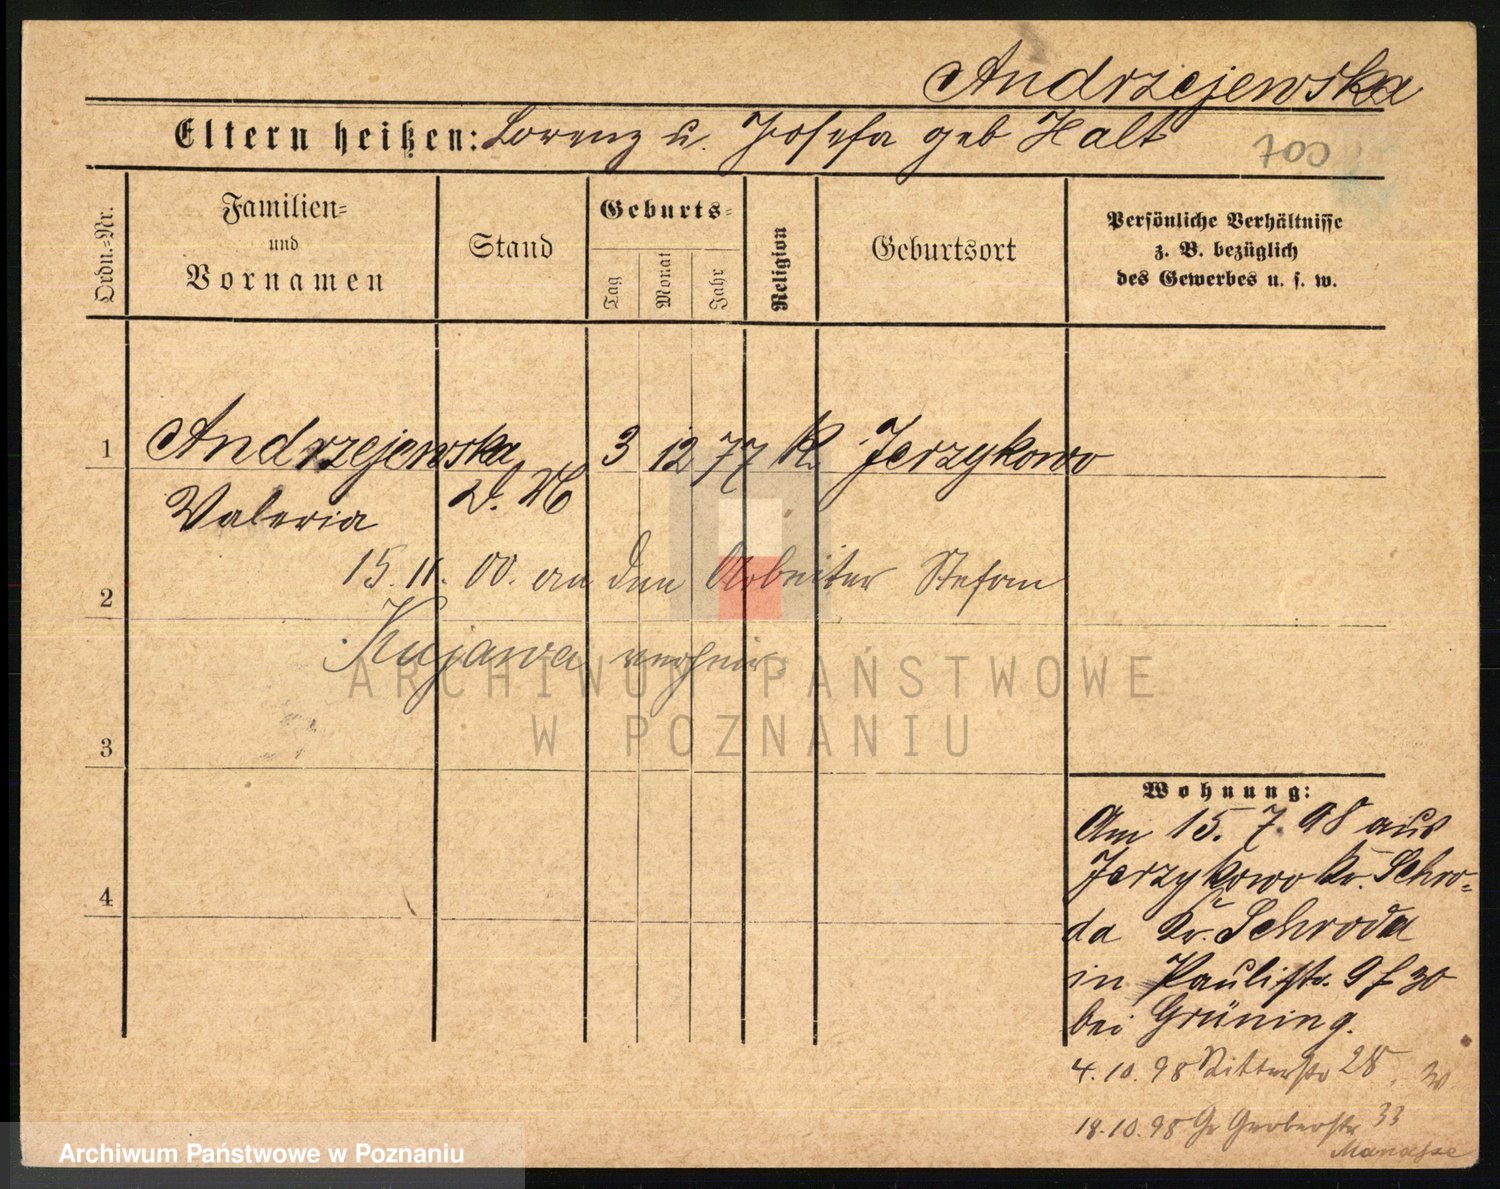 Andrzejewska
Eltern heißen: Lorenz u. Josefa geb Halt
700
Ordn.=Nr.
Familien=
und
Vornamen
Stand
Geburts=
Tag
Monat
Jahr
Religion
Geburtsort
Persönliche Verhältnisse
z. B. bezüglich
des Gewerbes u. s. w.
1 Andrzejewska 3 12 77 K. Jerzykowo
Valeria D. M
15. 11. 00. an den Arbeiter Stefan
2
Kujawa verheir.
ARCHIWUM PAŃSTWOWE
W POZNANIU
3
Wohnung:
Am 15. 7. 98 aus
Jerzykowo Kr. Schro=
4
da Kr. Schroda
in Paulistr. 9 f 30
bei Grüning.
4. 10. 98 Ritterstr 28.
18. 10. 98 Gr Gerberstr 33
Manasse
Archiwum Państwowe w Poznaniu